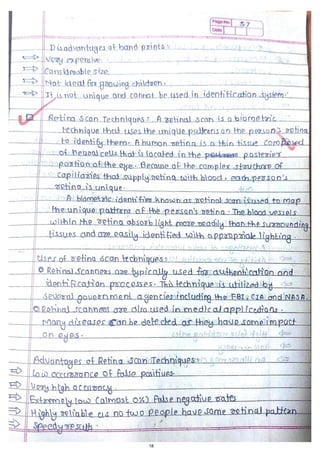 Page No. 57
Date
Disadvantages of hand prints:
Very expensive.
Considerable size
Not ideal for growing children.
It is not unique and cannot be used in identification system.
Retina Scan Techniques: A retinal scan is a biometric
technique that uses the unique patterns on the person's retina
to identify them. A human retina is a thin tissue composed
of neural cells that is located in the posterior
portion of the eye. Because of the complex structure of
capillaries that supply retina with blood, each person's
retina is unique.
A biometric identifier known as retinal scan is used to map
the unique pattern of the person's retina. The blood vessels
within the retina absorb light more readily than the surrounding
tissues and are easily identified with appropriate lighting.
Uses of retina scan techniques:
Retinal scanners are typically used for authentication and
identification processes. This technique is utilized by
several government agencies including the FBI, CIA and NASA.
Retinal scanners are also used in medical applications.
Many diseases can be detected as they have some impact
on eyes.
Advantages of Retina Scan Techniques
Low occurrence of false positives
Very high accuracy.
Extremely low (almost 0%) false negative rates
Highly reliable as no two people have same retinal pattern
Speedy result.
18